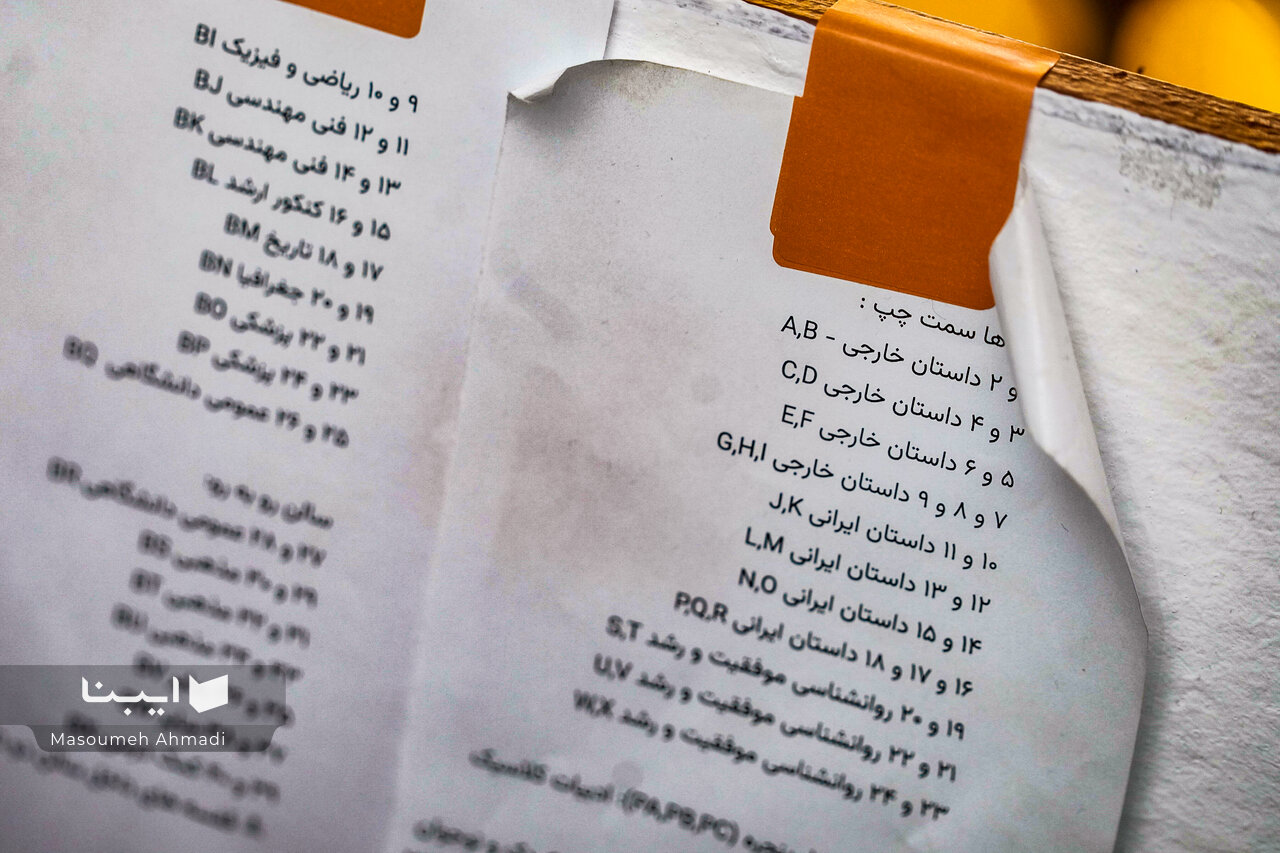 ها سمت چپ :
و ۲ داستان خارجی - A,B
۳ و ۴ داستان خارجی C,D
۵ و ۶ داستان خارجی E,F
۷ و ۸ و ۹ داستان خارجی G,H,I
۱۰ و ۱۱ داستان ایرانی J,K
۱۲ و ۱۳ داستان ایرانی L,M
۱۴ و ۱۵ داستان ایرانی N,O
۱۶ و ۱۷ و ۱۸ داستان ایرانی P,Q,R
۱۹ و ۲۰ روانشناسی موفقیت و رشد S,T
۲۱ و ۲۲ روانشناسی موفقیت و رشد U,V
۲۳ و ۲۴ روانشناسی موفقیت و رشد W,X
پنجره (FA,FB,FC): ادبیات کلاسیک
و نوجوان
۹ و ۱۰ ریاضی و فیزیک BI
۱۱ و ۱۲ فنی مهندسی BJ
۱۳ و ۱۴ فنی مهندسی BK
۱۵ و ۱۶ کنکور ارشد BL
۱۷ و ۱۸ تاریخ BM
۱۹ و ۲۰ جغرافیا BN
۲۱ و ۲۲ پزشکی BO
۲۳ و ۲۴ پزشکی BP
۲۵ و ۲۶ عمومی دانشگاهی BQ
سالن رو به رو:
۲۷ و ۲۸ عمومی دانشگاهی BR
۲۹ و ۳۰ مذهبی BS
۳۱ و ۳۲ مذهبی BT
۳۳ و ۳۴ مذهبی BU
ایبنا
Masoumeh Ahmadi